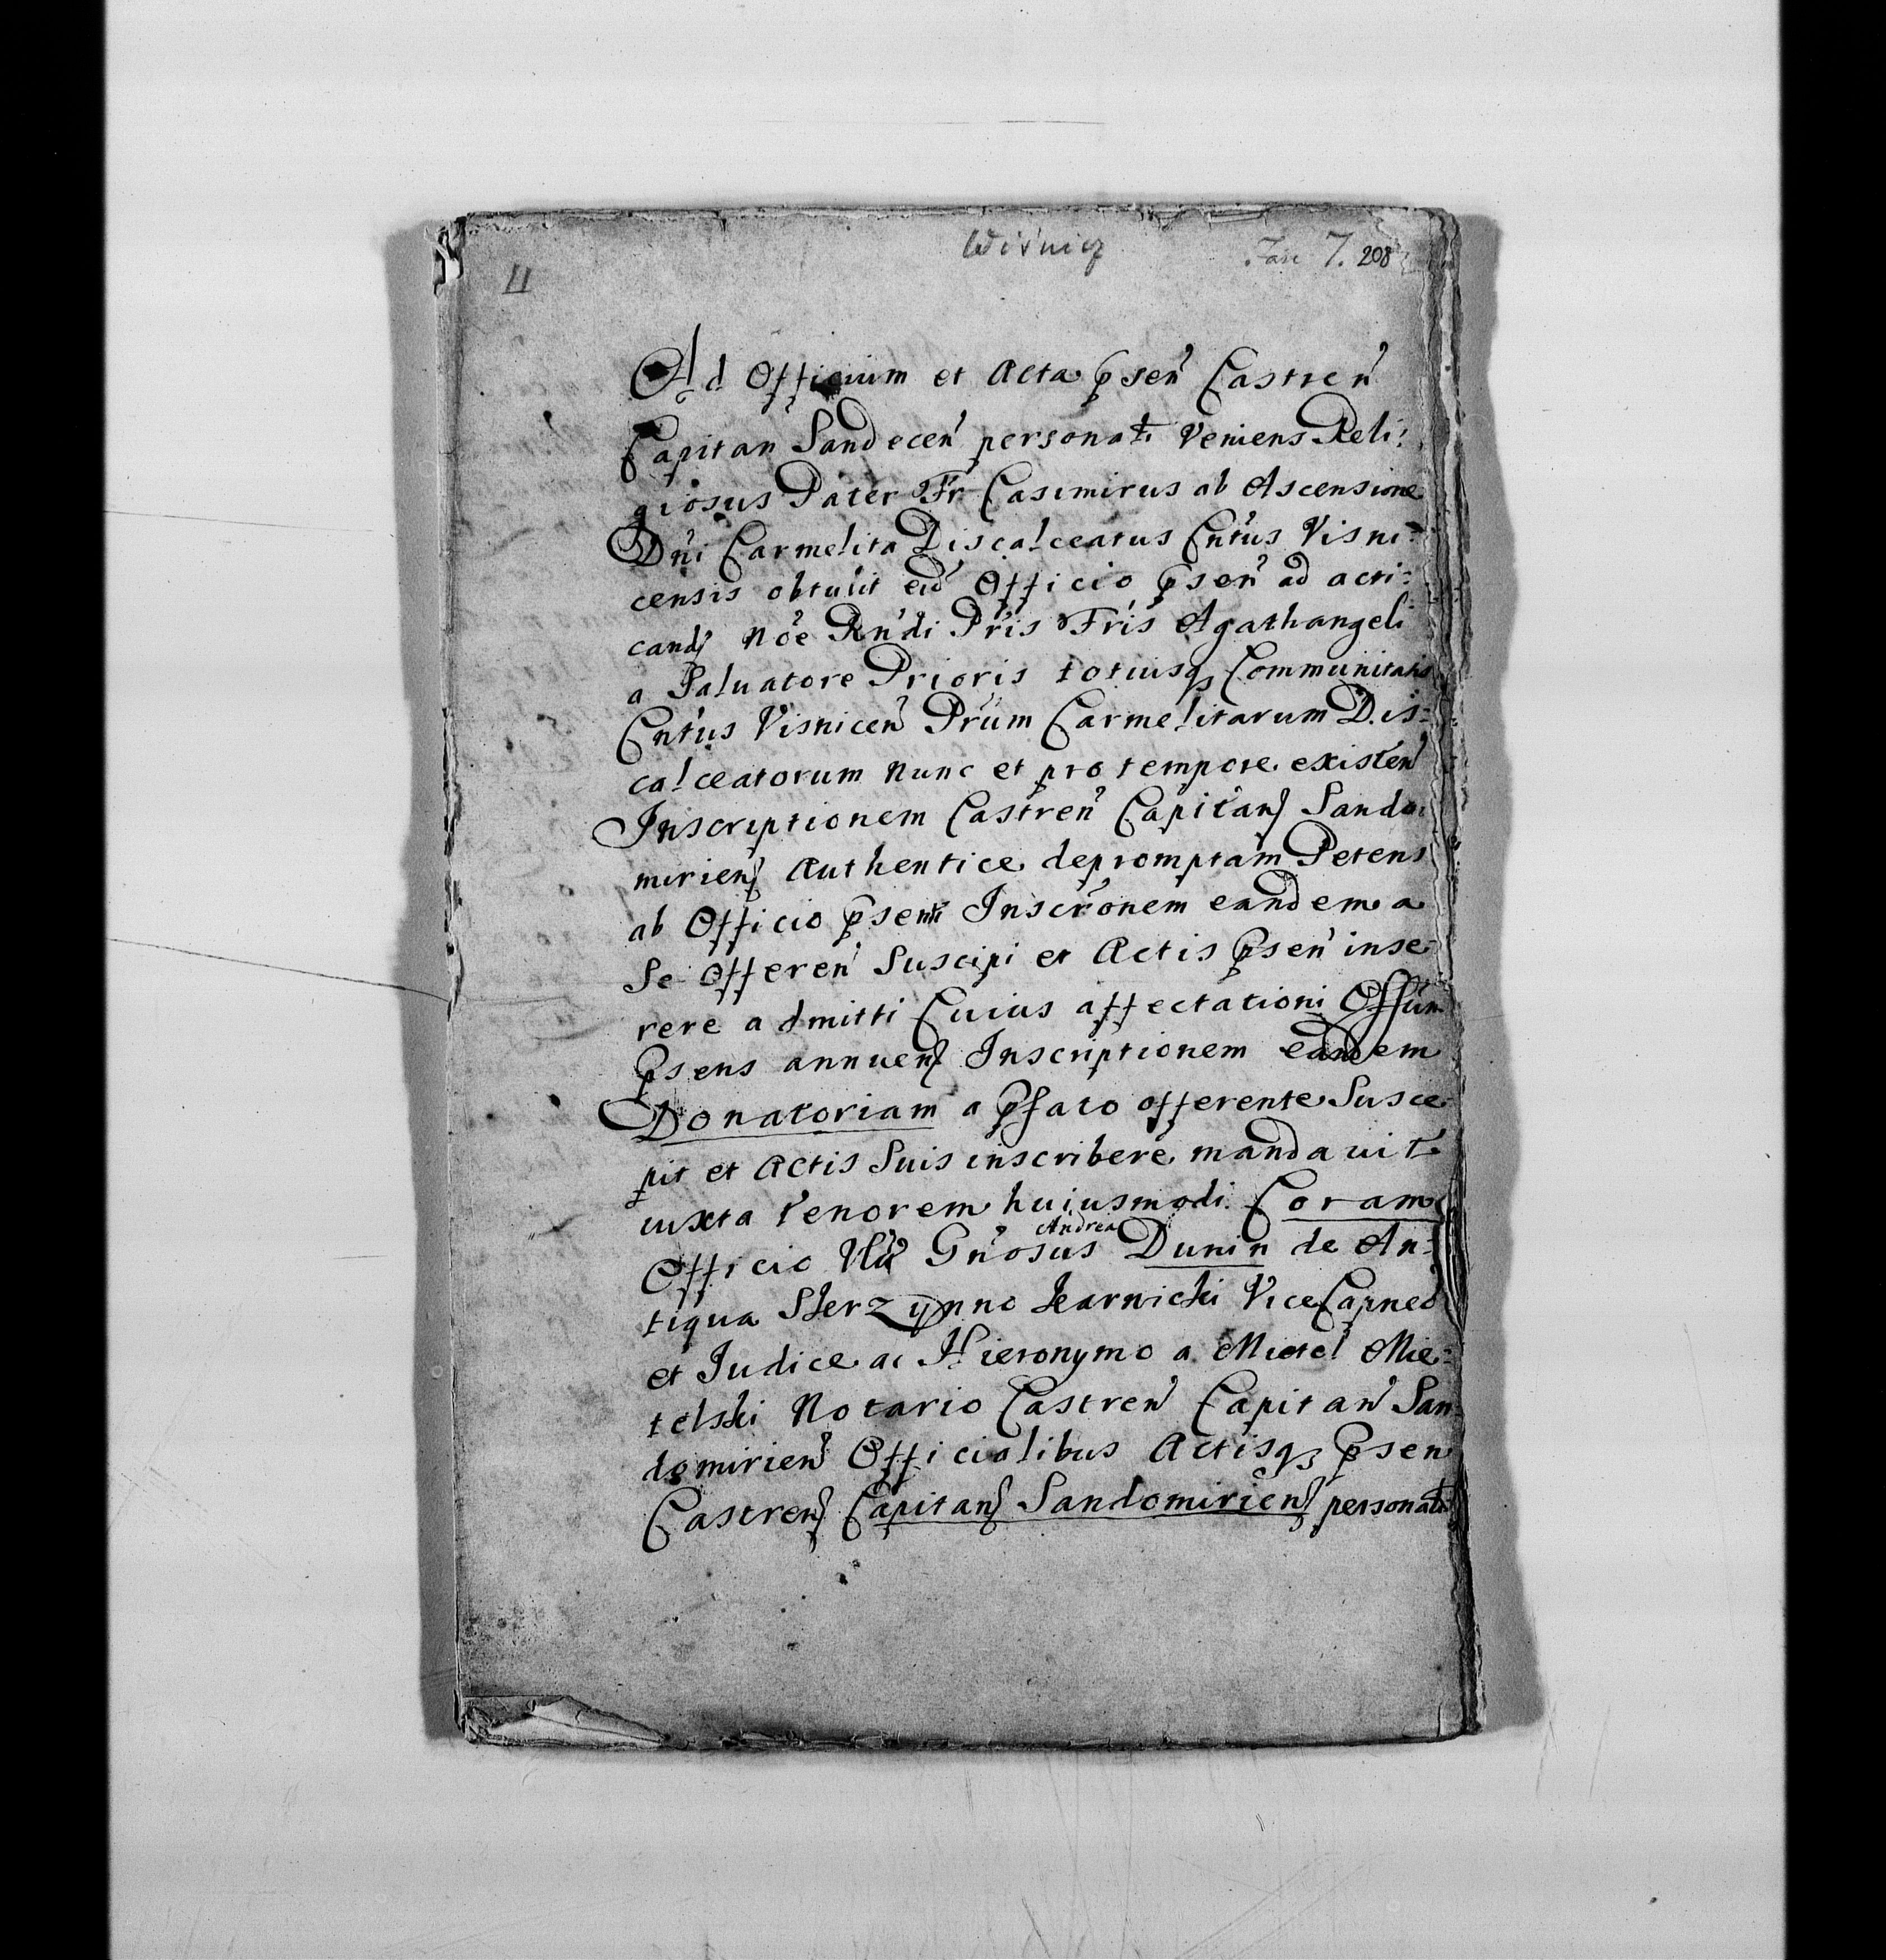 Wiśnicz
Fasc 7. 208
11
Ad Officium et Acta p̄sen̄ Castren̄
Capitan Sandecen̄ personalr̄ Veniens Reli:
giosus Pater Fr Casimirus ab Ascensione
Dn̄i Carmelita Discalceatus Cn̄tus Visni:
censis obtulit eid̄ Officio p̄sen̄ ad acti:
cand̄ nōe Rn̄di Pr̄is Fr̄is Agathangeli
a Saluatore Prioris totiusq₃ Communitatis
Cn̄tus Visnicen̄ Pr̄um Carmelitarum Dis:
calceatorum nunc et pro tempore existen̄
Inscriptionem Castren̄ Capitan̄ Sando:
mirien̄ Authentice depromptam Petens
ab Officio p̄senti Inscr̄onem eandem a
Se offeren̄ Suscipi et Actis p̄sen̄ inse:
rere admitti Cuius affectationi Offūm
p̄sens annuen̄ Inscriptionem eandem
Donatoriam a p̄fato offerente Susce:
pit et Actis Suis inscribere mandauit
iuxta tenorem huiusmodi. Coram
Officio Gn̄osus Andrea Dunin de An:
tiqua Skrzynno Karwicki ViceCapneo
et Iudice ac Hieronymo a Mietel Mie:
telski Notario Castren̄ Capitan̄ San:
domirien̄ Officialibus Actisq₃ p̄sen
Castren̄ Capitan̄ Sandomirien̄ personalr̄